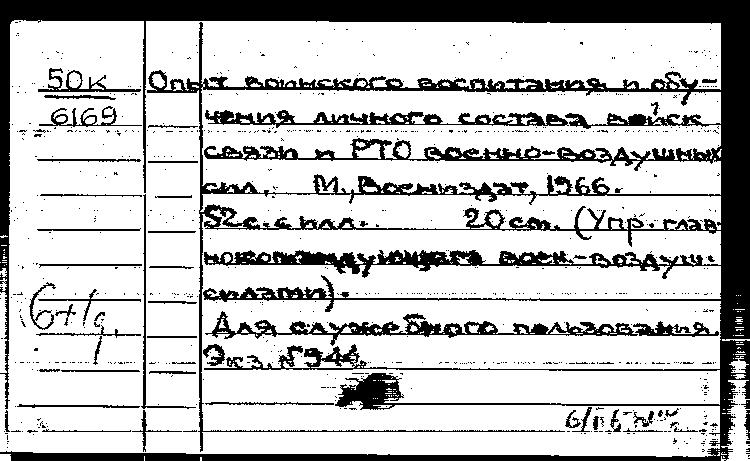 50к Опыт воинского воспитания и обу-
6169 чения личного состава войск
связи и РТО военно-воздушных
сил. М., Воениздат, 1966.
52 с. с илл. 20 см. (Упр. глав-
нокомандующего воен.-воздуш.
силами).
Для служебного пользования.
Экз. №944.